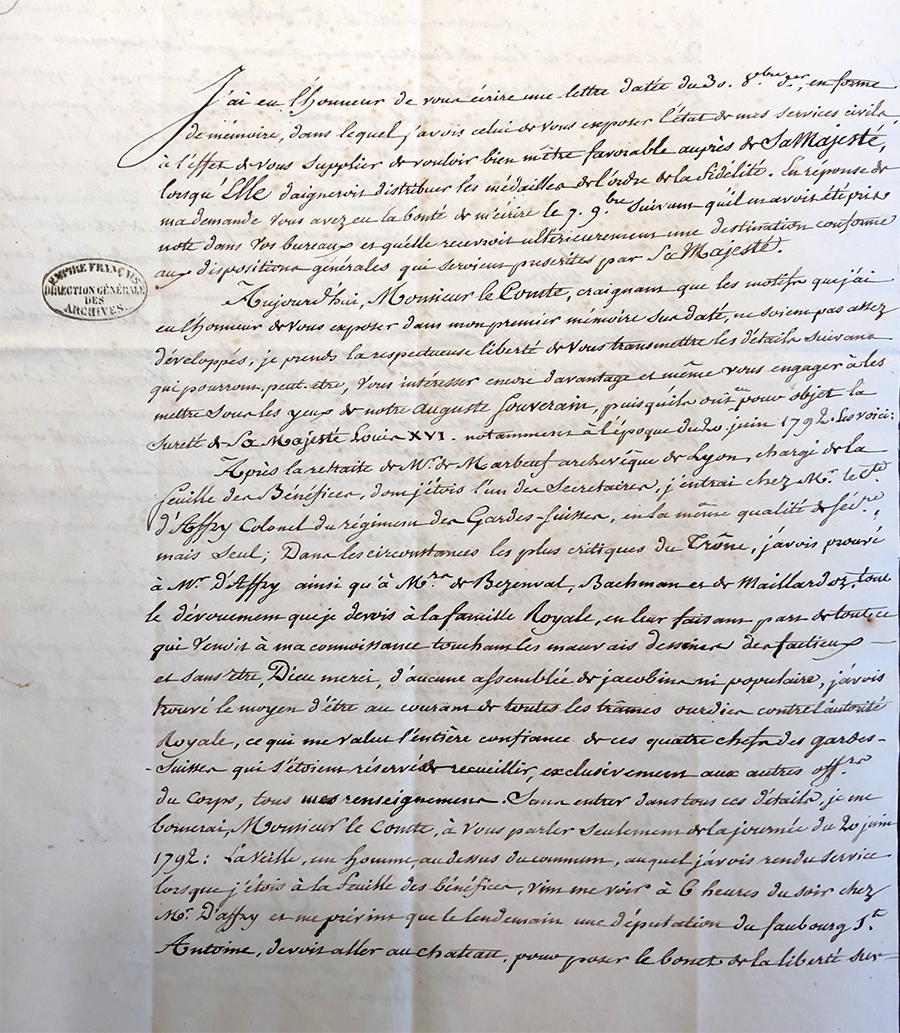 J'ai eu l'honneur de vous écrire une lettre datée du 30. 8bre der, en forme
de mémoire, dans lequel j'avois celui de vous exposer l'état de mes services civils,
à l'effet de vous supplier de vouloir bien m'être favorable auprès de Sa Majesté,
lorsqu'Elle daigneroit distribuer les médailles de l'ordre de la Fidélité. En réponse de
ma demande vous avez eu la bonté de m'écrire le 7. 9bre suivant qu'il en avoit été pris
note dans vos bureaux et qu'elle recevroit ultérieurement une destination conforme
aux dispositions générales qui seroient prescrites par Sa Majesté.
EMPIRE FRANÇAIS
DIRECTION GÉNÉRALE
DES
ARCHIVES.
Aujourd'hui, Monsieur le Comte, craignant que les motifs que j'ai
eu l'honneur de vous exposer dans mon premier mémoire sus daté, ne soient pas assez
développés, je prends la respectueuse liberté de vous transmettre les détails suivans
qui pourront, peut-être, vous intéresser encore davantage et même vous engager à les
mettre sous les yeux de notre auguste Souverain, puisqu'ils ont eu pour objet la
sureté de Sa Majesté Louis XVI. notamment à l'époque du 20 juin 1792. Les voici:
Après la retraite de Mr. de Marbeuf archevêque de Lyon, chargé de la
feuille des Bénéfices, dont j'étois l'un des Secretaires, j'entrai chez Mr. le Cte.
d'Affry Colonel du régiment des Gardes-Suisses, en la même qualité de Secre.,
mais seul; Dans les circonstances les plus critiques du Trône, j'avois prouvé
à Mr. D'Affry ainsi qu'à Mrs. de Bezenval, Bachman et de Maillardoz, tout
le dévouement que je devois à la famille Royale, en leur faisant part de tout ce
qui venoit à ma connoissance touchant les mauvais desseins des factieux
et sans être, Dieu merci, d'aucune assemblée de jacobins ni populaire, j'avois
trouvé le moyen d'être au courant de toutes les trâmes ourdies contre l'autorité
Royale, ce qui me valut l'entière confiance de ces quatre chefs des gardes-
-Suisses qui s'étoient réservés de recueillir, exclusivement aux autres offrs.
du Corps, tous mes renseignemens. Sans entrer dans tous ces détails, je me
bornerai, Monsieur le Comte, à vous parler seulement de la journée du 20 juin
1792: La veille, un homme au dessus du commun, auquel j'avois rendu service
lorsque j'étois à la feuille des bénéfices, vint me voir à 6 heures du soir chez
Mr. D'affry et me prévint que le lendemain une députation du faubourg St.
Antoine, devoit aller au chateau, pour poser le bonet de la liberté sur